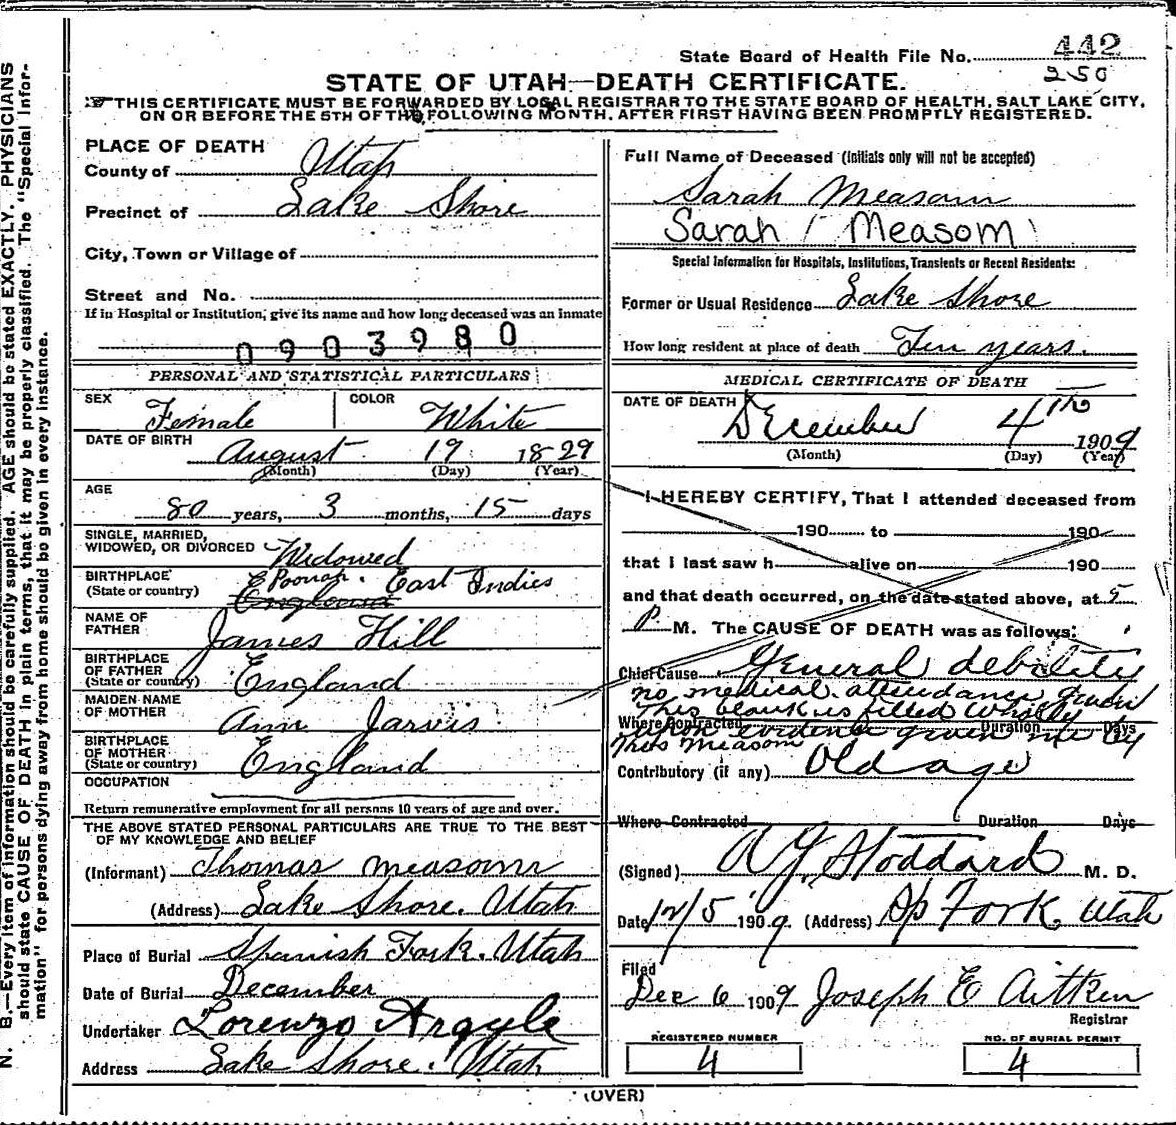 State Board of Health File No. 442
250
STATE OF UTAH—DEATH CERTIFICATE.
THIS CERTIFICATE MUST BE FORWARDED BY LOCAL REGISTRAR TO THE STATE BOARD OF HEALTH, SALT LAKE CITY,
ON OR BEFORE THE 5TH OF THE FOLLOWING MONTH, AFTER FIRST HAVING BEEN PROMPTLY REGISTERED.
N. B.—Every item of information should be carefully supplied. AGE should be stated EXACTLY. PHYSICIANS
should state CAUSE OF DEATH in plain terms, that it may be properly classified. The "Special Infor-
mation" for persons dying away from home should be given in every instance.
PLACE OF DEATH
County of Utah
Precinct of Lake Shore
City, Town or Village of
Street and No.
If in Hospital or Institution, give its name and how long deceased was an inmate
0903980
PERSONAL AND STATISTICAL PARTICULARS
SEX Female COLOR White
DATE OF BIRTH
August 19 1829
(Month) (Day) (Year)
AGE
80 years, 3 months, 15 days
SINGLE, MARRIED,
WIDOWED, OR DIVORCED Widowed
BIRTHPLACE Poonah. East Indies
(State or country) England
NAME OF
FATHER James Hill
BIRTHPLACE
OF FATHER
(State or country) England
MAIDEN NAME
OF MOTHER Ann Jarvis
BIRTHPLACE
OF MOTHER
(State or country) England
OCCUPATION
Return remunerative employment for all persons 10 years of age and over.
THE ABOVE STATED PERSONAL PARTICULARS ARE TRUE TO THE BEST
OF MY KNOWLEDGE AND BELIEF
(Informant) Thomas Measom
(Address) Lake Shore. Utah
Place of Burial Spanish Fork. Utah
Date of Burial December
Undertaker Lorenzo Argyle
Address Lake Shore. Utah
Full Name of Deceased (Initials only will not be accepted)
Sarah Measom
Sarah Measom
Special Information for Hospitals, Institutions, Transients or Recent Residents:
Former or Usual Residence Lake Shore
How long resident at place of death Ten years.
MEDICAL CERTIFICATE OF DEATH
DATE OF DEATH
December 4th 1909
(Month) (Day) (Year)
I HEREBY CERTIFY, That I attended deceased from
190 to 190
that I last saw h alive on 190
and that death occurred, on the date stated above, at 5
P. M. The CAUSE OF DEATH was as follows:
Chief Cause General debility
no medical attendance given
This blank is filled wholly
Where Contracted Duration Days
upon evidence given me by
Thos Measom
Contributory (if any) Old age
Where Contracted Duration Days
(Signed) A J Stoddard M. D.
Date 12/5 1909. (Address) Sp Fork Utah
Filed
Dec 6 1909 Joseph E Aitken
Registrar
REGISTERED NUMBER
4
NO. OF BURIAL PERMIT
4
(OVER)